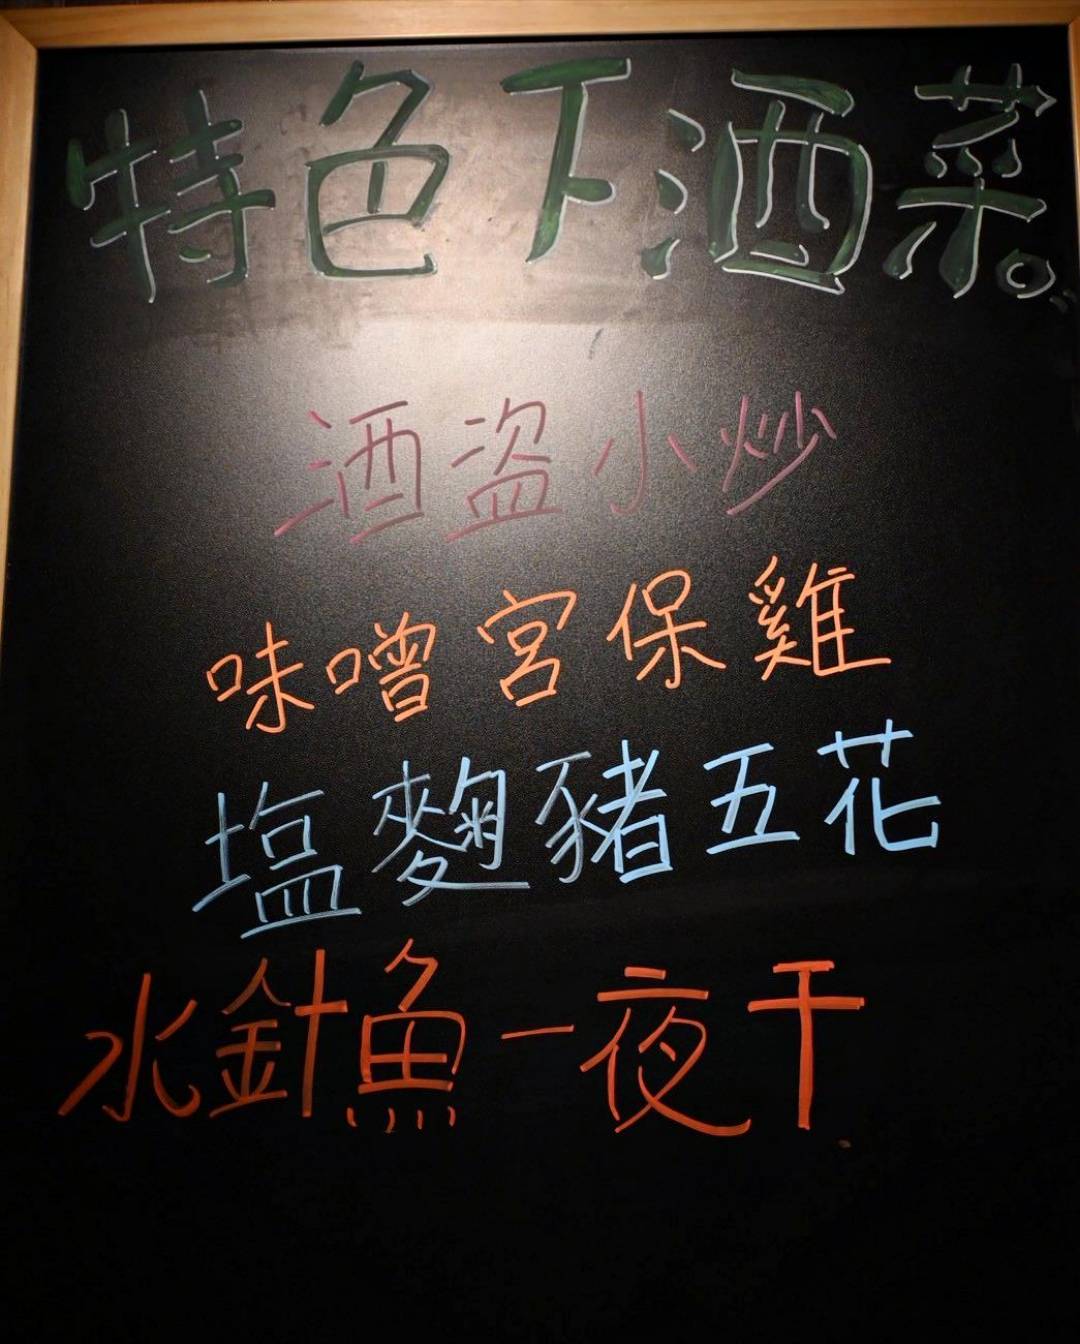 特色下酒菜。
酒盜小炒
味噌宮保雞
塩麴豬五花
水針魚一夜干